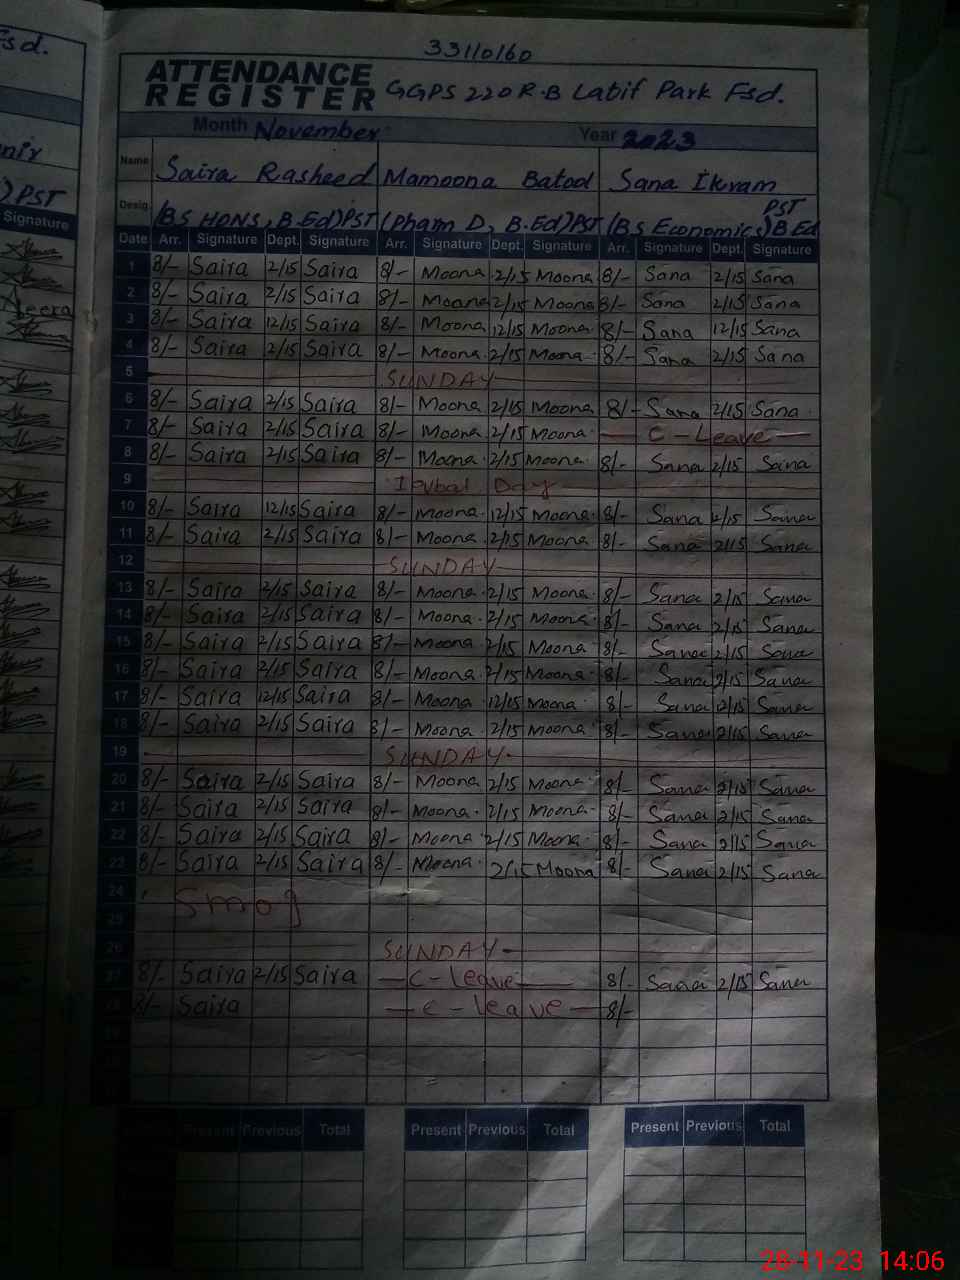 Fsd.
33110160
ATTENDANCE
REGISTER
GGPS 220 R.B Latif Park Fsd.
Month November Year 2023
Name Saira Rasheed Mamoona Batool Sana Ikram
PST
Desig. (BS HONS, B.Ed)PST (Pharm D, B.Ed)PST (BS Economics) B.Ed
PST
Signature
Date Arr. Signature Dept. Signature Arr. Signature Dept. Signature Arr. Signature Dept. Signature
1 8/- Saira 2/15 Saira 8/- Moona 2/15 Moona 8/- Sana 2/15 Sana
2 8/- Saira 2/15 Saira 8/- Moona 2/15 Moona 8/- Sana 2/15 Sana
3 8/- Saira 12/15 Saira 8/- Moona 12/15 Moona 8/- Sana 12/15 Sana
4 8/- Saira 2/15 Saira 8/- Moona 2/15 Moona 8/- Sana 2/15 Sana
5 SUNDAY
6 8/- Saira 2/15 Saira 8/- Moona 2/15 Moona 8/- Sana 2/15 Sana
7 8/- Saira 2/15 Saira 8/- Moona 2/15 Moona — C-Leave —
8 8/- Saira 2/15 Saira 8/- Moona 2/15 Moona 8/- Sana 2/15 Sana
9 Iqbal Day
10 8/- Saira 12/15 Saira 8/- Moona 12/15 Moona 8/- Sana 2/15 Sana
11 8/- Saira 2/15 Saira 8/- Moona 2/15 Moona 8/- Sana 2/15 Sana
12 SUNDAY
13 8/- Saira 2/15 Saira 8/- Moona 2/15 Moona 8/- Sana 2/15 Sana
14 8/- Saira 2/15 Saira 8/- Moona 2/15 Moona 8/- Sana 2/15 Sana
15 8/- Saira 2/15 Saira 8/- Moona 2/15 Moona 8/- Sana 2/15 Sana
16 8/- Saira 2/15 Saira 8/- Moona 2/15 Moona 8/- Sana 2/15 Sana
17 8/- Saira 12/15 Saira 8/- Moona 12/15 Moona 8/- Sana 12/15 Sana
18 8/- Saira 2/15 Saira 8/- Moona 2/15 Moona 8/- Sana 2/15 Sana
19 SUNDAY
20 8/- Saira 2/15 Saira 8/- Moona 2/15 Moona 8/- Sana 2/15 Sana
21 8/- Saira 2/15 Saira 8/- Moona 2/15 Moona 8/- Sana 2/15 Sana
22 8/- Saira 2/15 Saira 8/- Moona 2/15 Moona 8/- Sana 2/15 Sana
23 8/- Saira 2/15 Saira 8/- Moona 2/15 Moona 8/- Sana 2/15 Sana
24
Smog
25
26 SUNDAY
27 8/- Saira 2/15 Saira — C-leave — 8/- Sana 2/15 Sana
28 8/- Saira — C-leave — 8/-
Present Previous Total Present Previous Total Present Previous Total
28-11-23 14:06